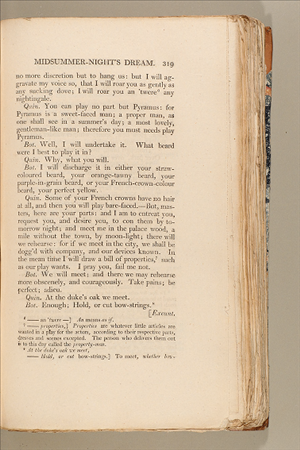 MIDSUMMER-NIGHT'S DREAM. 319
no more discretion but to hang us: but I will ag-
gravate my voice so, that I will roar you as gently as
any sucking dove; I will roar you an 'twere⁶ any
nightingale.
Quin. You can play no part but Pyramus: for
Pyramus is a sweet-faced man; a proper man, as
one shall see in a summer's day; a most lovely,
gentleman-like man; therefore you must needs play
Pyramus.
Bot. Well, I will undertake it. What beard
were I best to play it in?
Quin. Why, what you will.
Bot. I will discharge it in either your straw-
coloured beard, your orange-tawny beard, your
purple-in-grain beard, or your French-crown-colour
beard, your perfect yellow.
Quin. Some of your French crowns have no hair
at all, and then you will play bare-faced.—But, mas-
ters, here are your parts: and I am to entreat you,
request you, and desire you, to con them by to-
morrow night; and meet me in the palace wood, a
mile without the town, by moon-light; there will
we rehearse: for if we meet in the city, we shall be
dogg'd with company, and our devices known. In
the mean time I will draw a bill of properties,⁷ such
as our play wants. I pray you, fail me not.
Bot. We will meet; and there we may rehearse
more obscenely, and courageously. Take pains; be
perfect; adieu.
Quin. At the duke's oak we meet.
Bot. Enough; Hold, or cut bow-strings.⁸
[Exeunt.
⁶ —— an 'twere—] An means as if.
⁷ —— properties,] Properties are whatever little articles are
wanted in a play for the actors, according to their respective parts,
dresses and scenes excepted. The person who delivers them out
is to this day called the property-man.
⁸ At the duke's oak we meet,
—— Hold, or cut bow-strings.] To meet, whether bow-